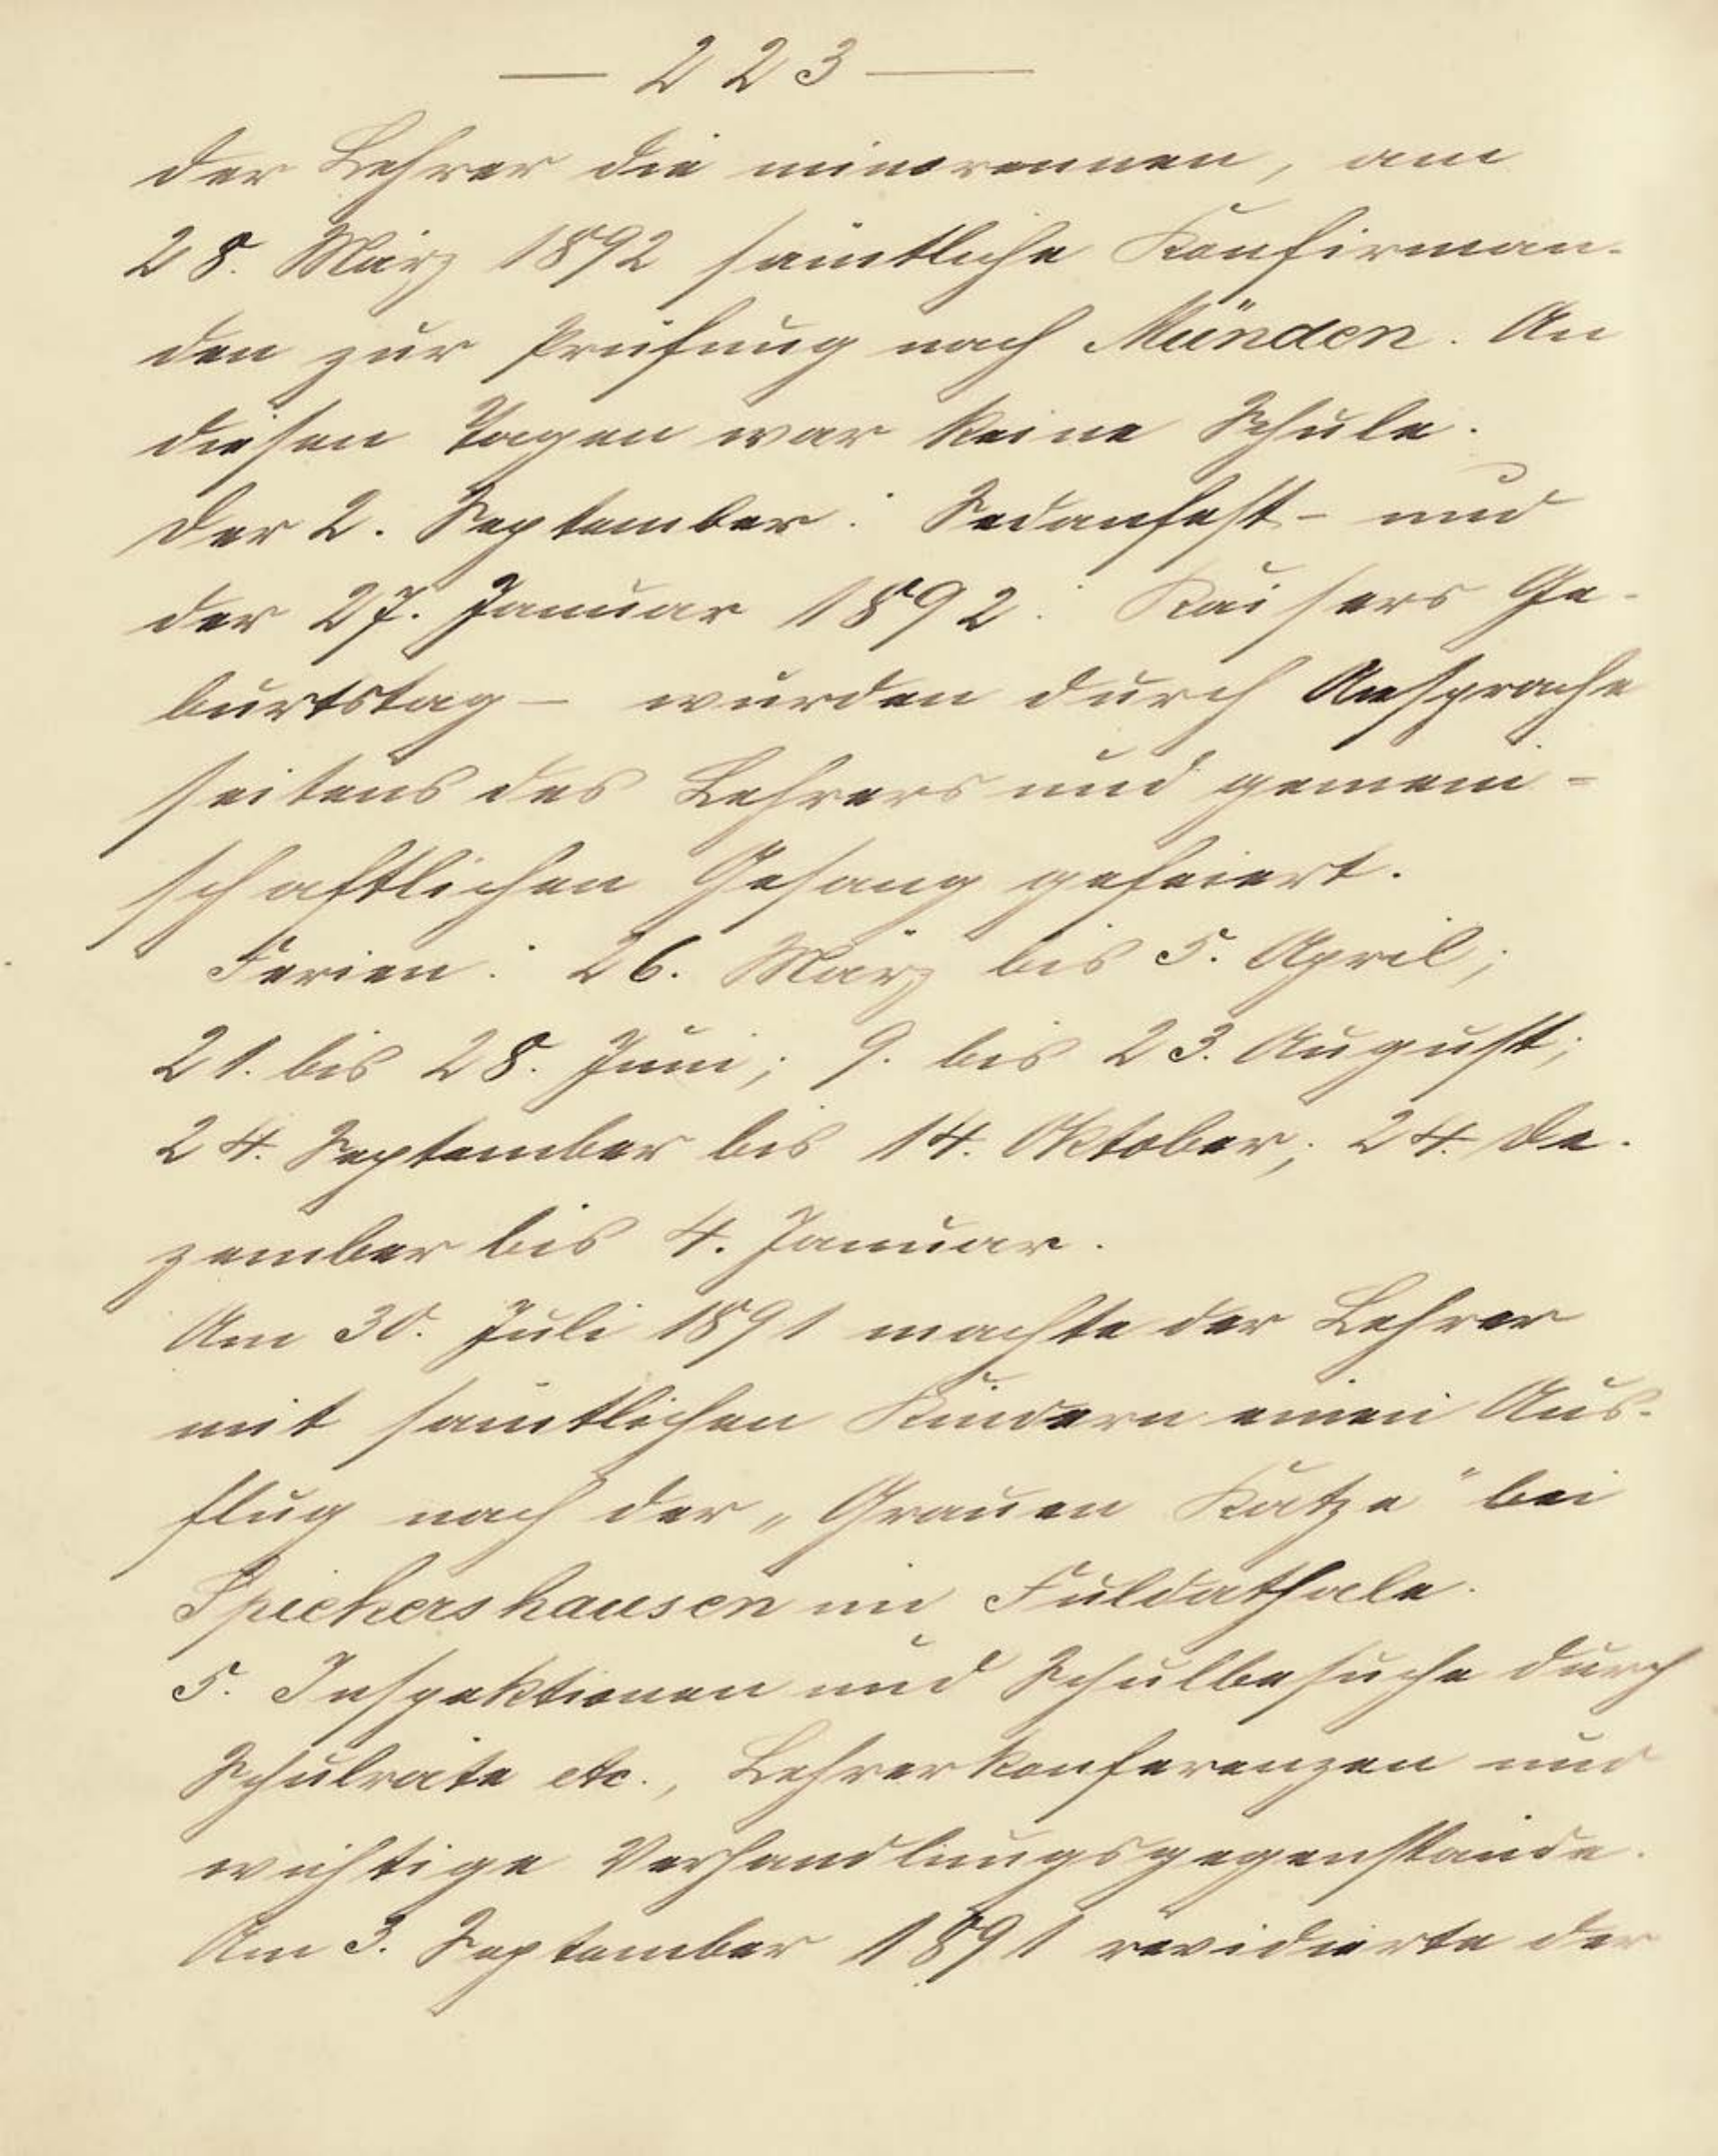 — 223 —
der Lehrer die minorennen, am
28. März 1892 sämtliche Konfirman-
den zur Prüfung nach Münden. An
diesen Tagen war keine Schule.
Der 2. September: Sedanfest – und
der 27. Januar 1892: Kaisers Ge-
burtstag – wurden durch Ansprache
seitens des Lehrers und gemein-
schaftlichen Gesang gefeiert.
Ferien: 26. März bis 5. April;
21. bis 28. Juni; 9. bis 23. August;
24. September bis 14. Oktober; 24. De-
zember bis 4. Januar.
Am 30. Juli 1891 machte der Lehrer
mit sämtlichen Kindern einen Aus-
flug nach der „Grauen Katze" bei
Spiekershausen im Fuldathale.
5. Inspektionen und Schulbesuche durch
Schulräte etc., Lehrerkonferenzen und
wichtige Verhandlungsgegenstände.
Am 3. September 1891 revidierte der